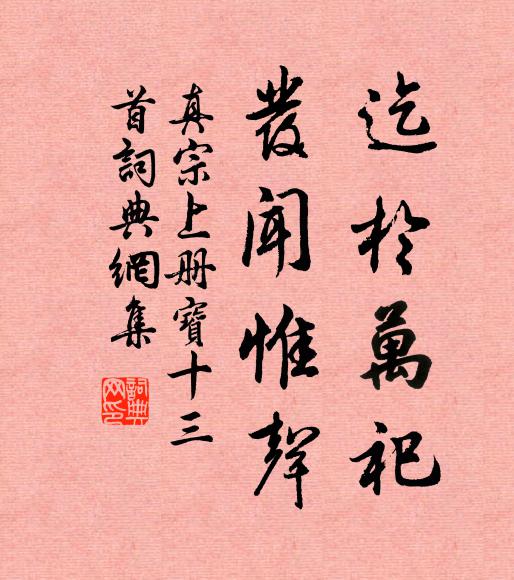 迄於萬祀
發聞惟聲
真宗上册寶十三
首詞典網集
詞典
网印